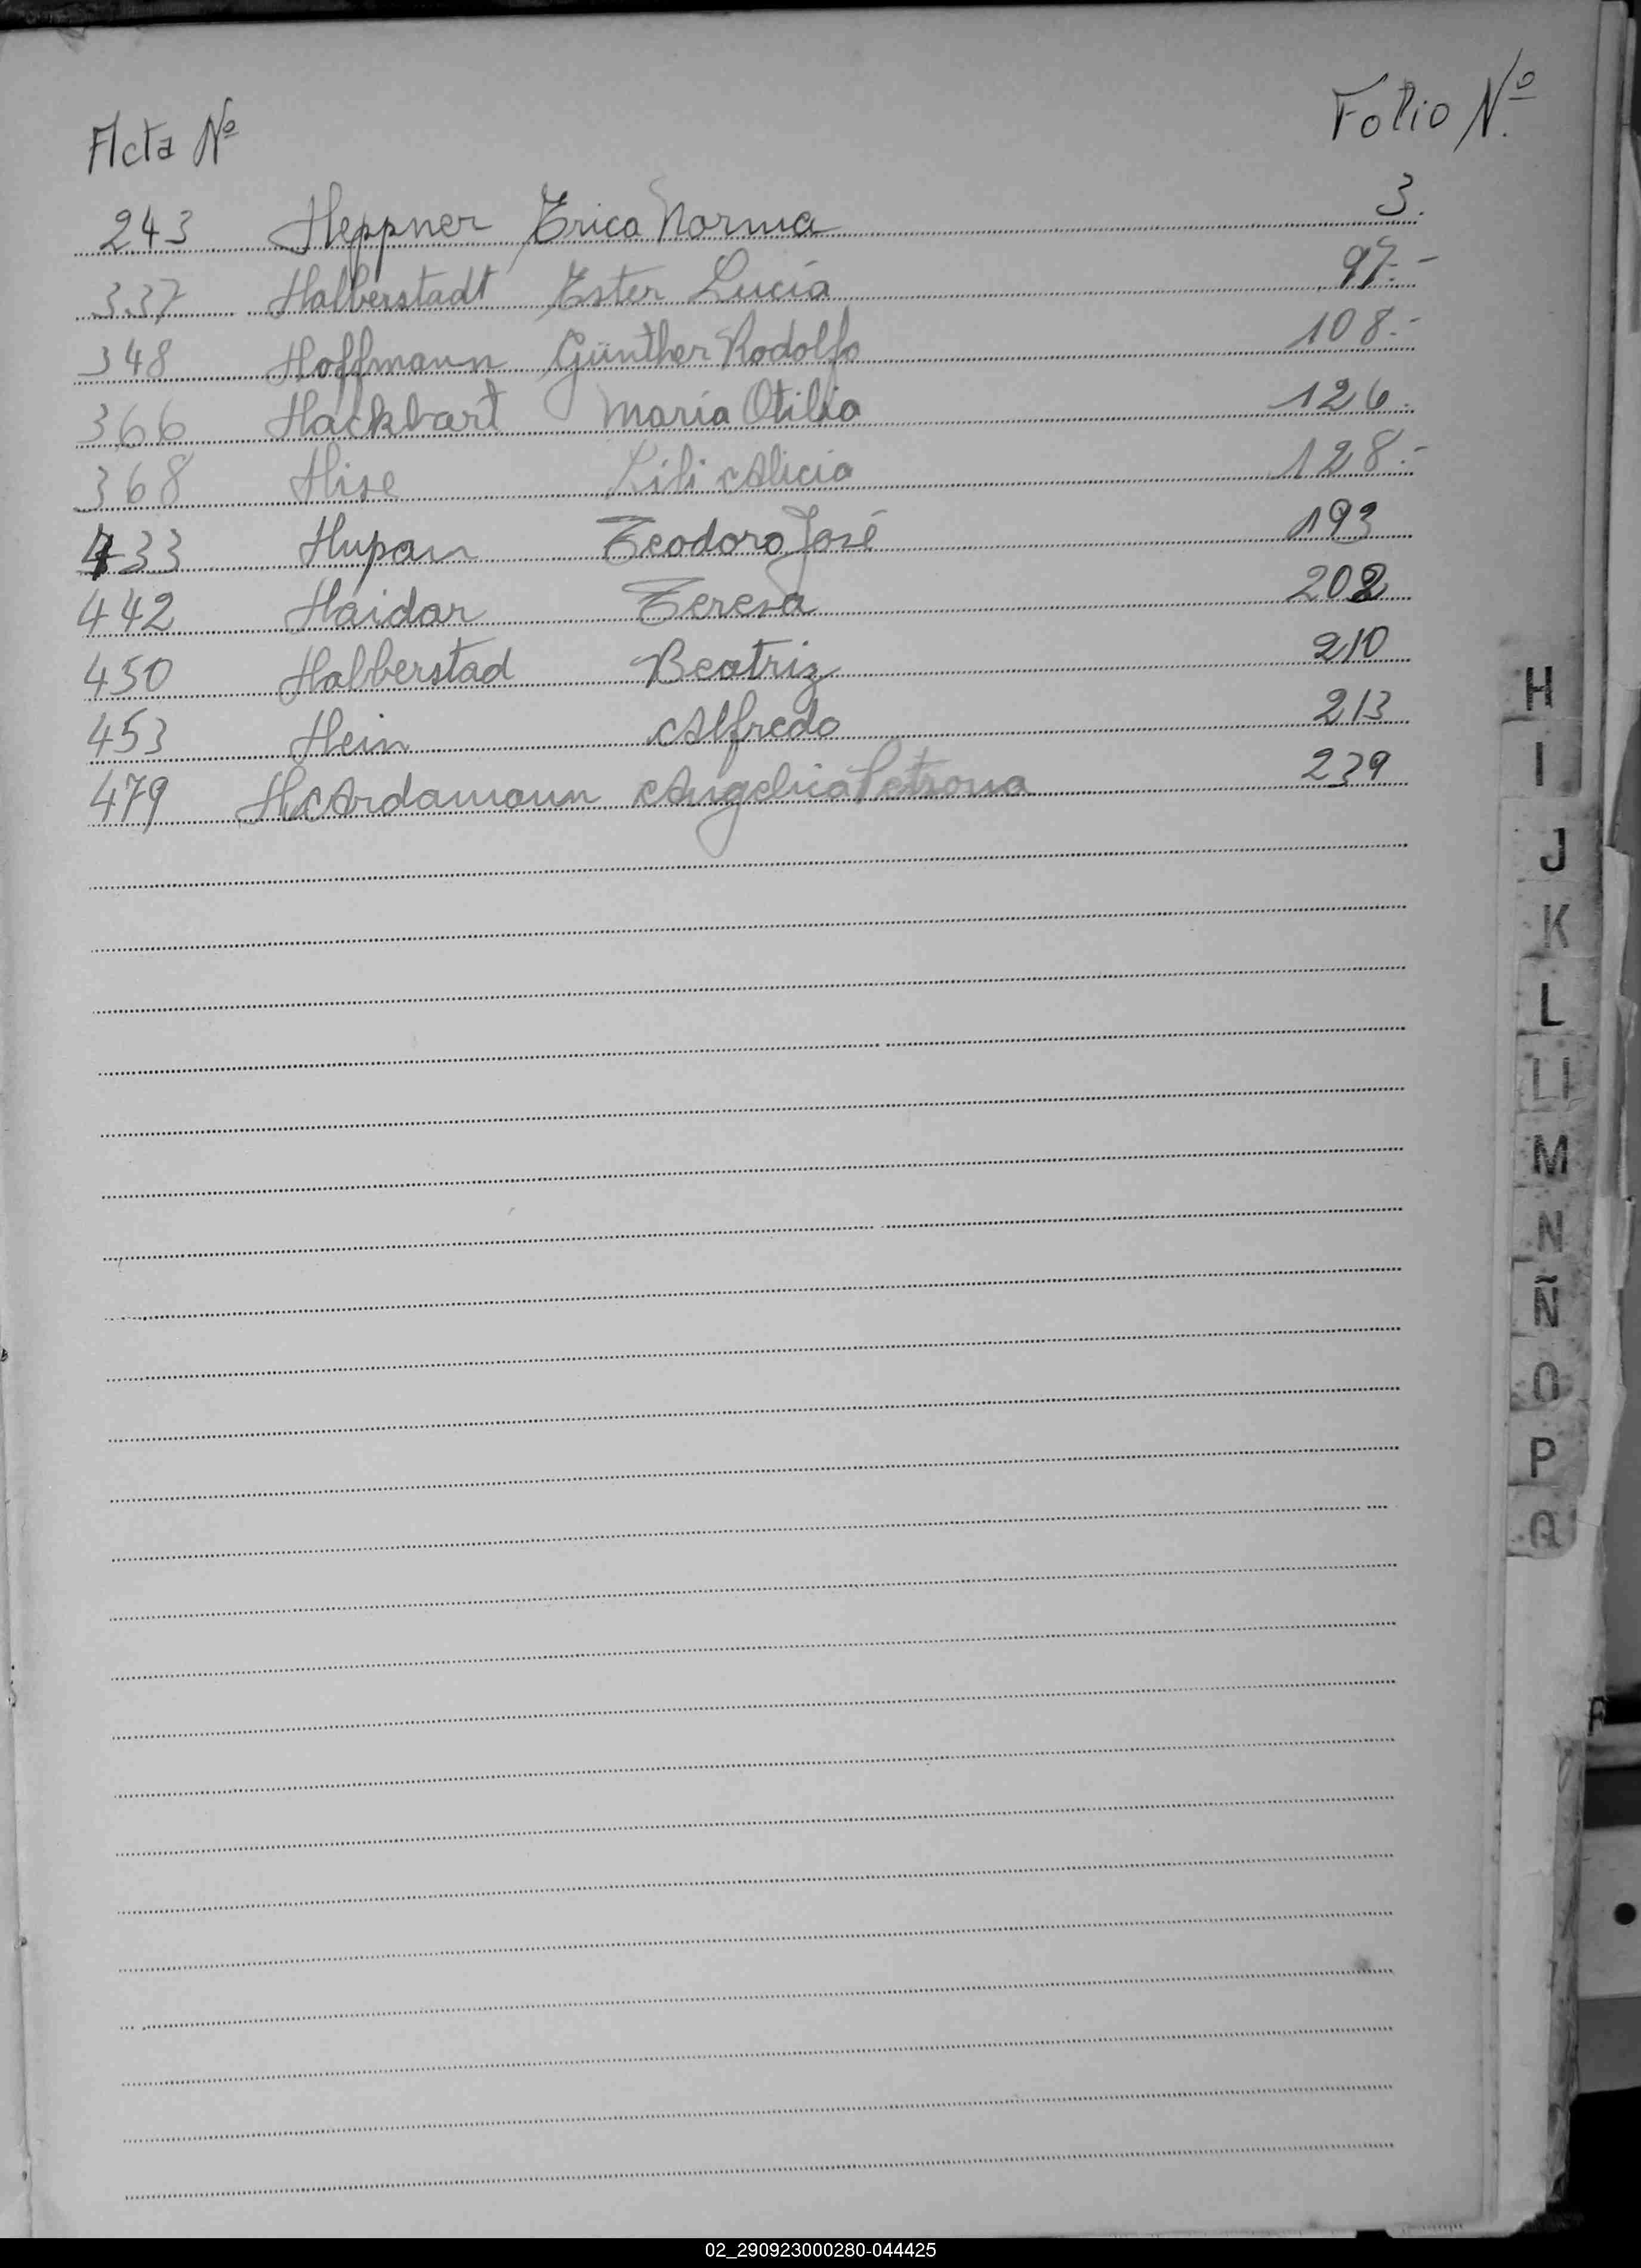 Acta Nº Folio Nº.
243 Heppner Erica Norma 3.
337 Halberstadt Ester Lucía 97.-
348 Hoffmann Günther Rodolfo 108.-
366 Hackbart María Otilia 126.
368 Hise Lili Alicia 128.-
433 Hupan Teodoro José 193
442 Haidar Teresa 202
450 Halberstad Beatriz 210
453 Hein Alfredo 213
479 Angelica Petrona 239
H
I
J
K
L
Ll
M
N
Ñ
O
P
Q
R
02_290923000280-044425